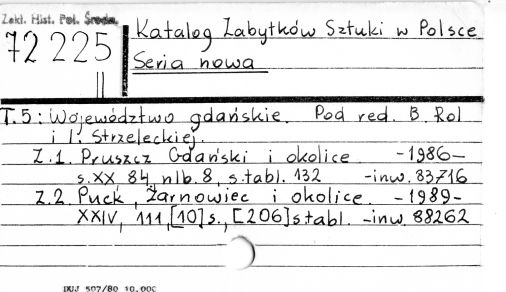 Zakł. Hist. Pol. Średn.
72 225
II
Katalog Zabytków Sztuki w Polsce
Seria nowa
T.5: Województwo gdańskie. Pod red. B. Rol
i I. Strzeleckiej.
Z.1. Pruszcz Gdański i okolice -1986-
s. XX 84, nlb. 8, s. tabl. 132 -inw. 83716
Z.2. Puck, Żarnowiec i okolice. -1989-
XXIV, 111, [10] s., [206] s tabl. -inw. 88262
DUJ 507/80 10.000